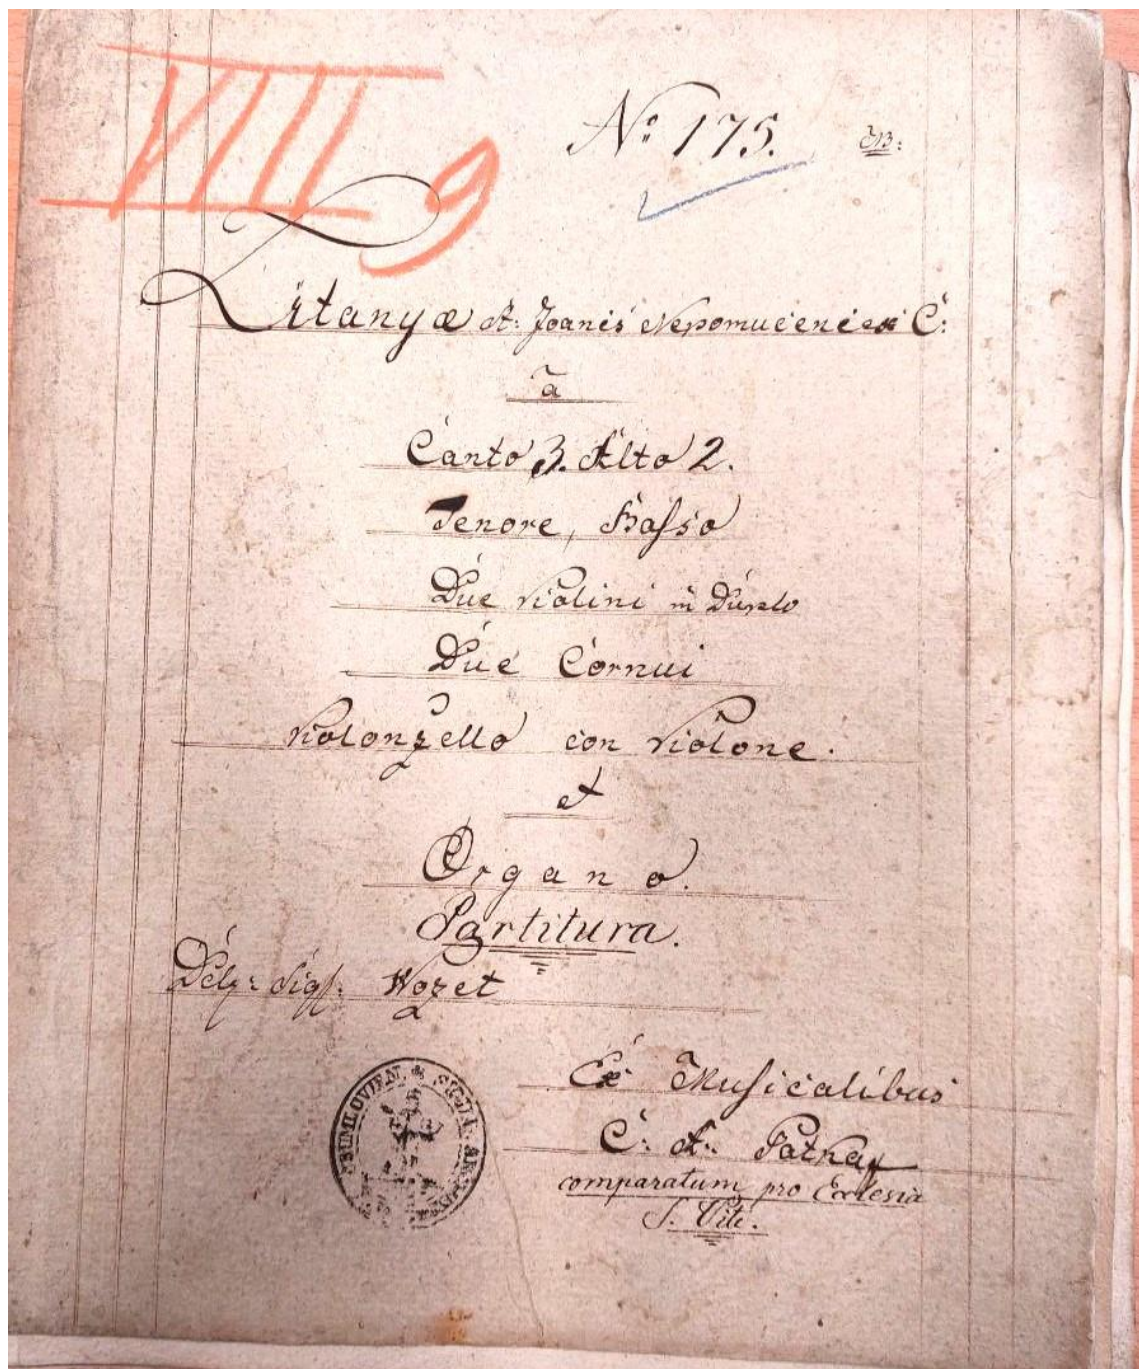 VIII 9
No 175.
Litanyæ S: Joanis Nepomuceni ex C:
a
Canto 3. Alto 2.
Tenore, Basso
Due Violini in Duplo
Due Cornui
Violonzello con Violone.
et
Organo.
Partitura.
Del: Sig: Wozet
Ex Musicalibus
C: A: Patka
comparatum pro Ecclesia
S. Viti.